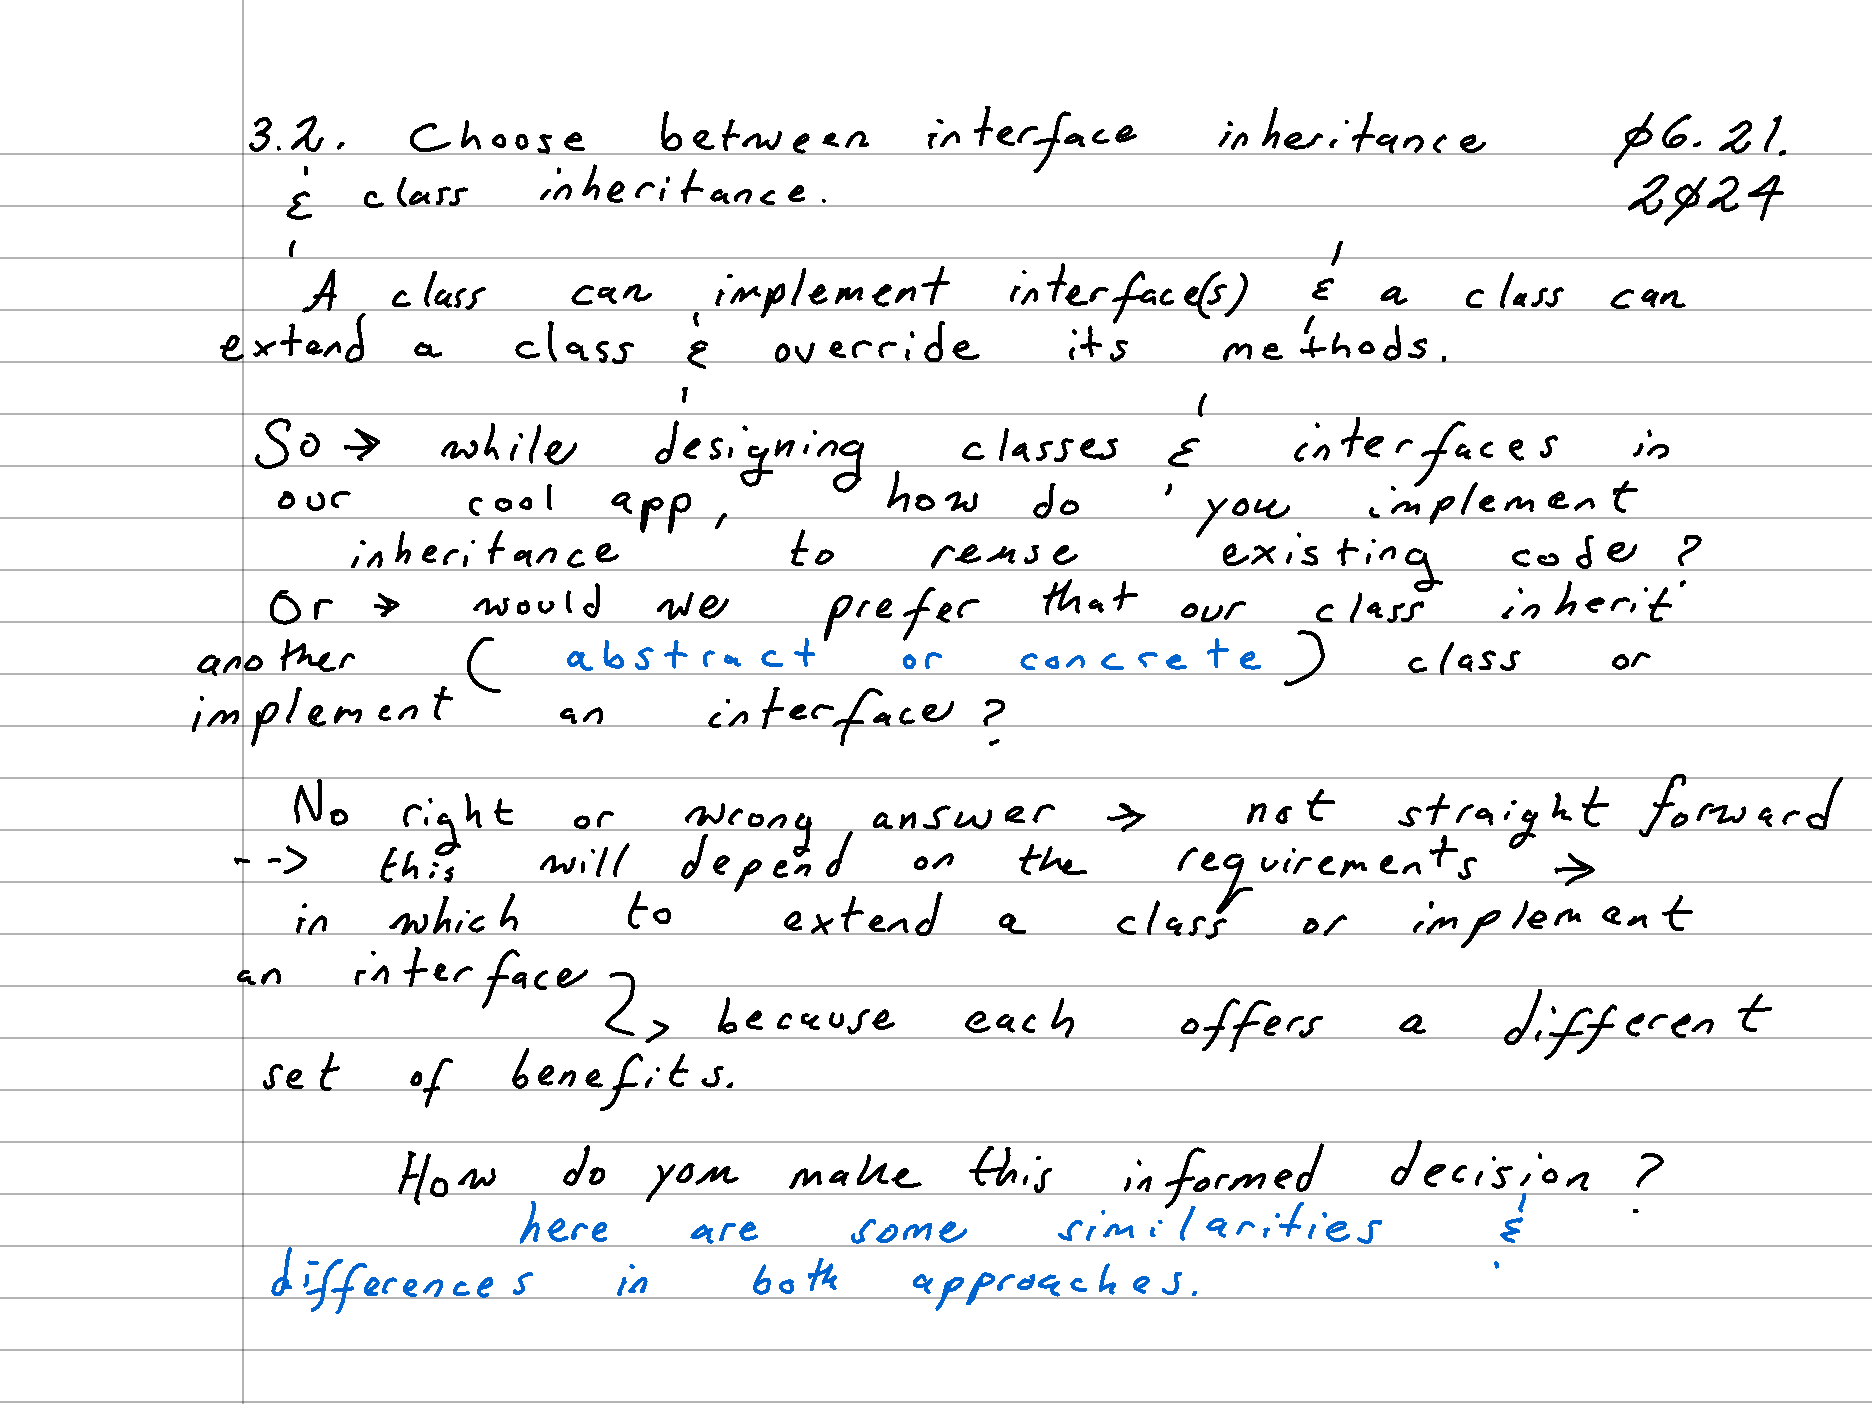 3.2. Choose between interface inheritance 06.21.
& class inheritance. 2024
A class can implement interface(s) & a class can
extend a class & override its methods.
So → while designing classes & interfaces in
our cool app, how do you implement
inheritance to reuse existing code?
Or → would we prefer that our class inherit
another (abstract or concrete) class or
implement an interface?
No right or wrong answer → not straight forward
--> this will depend on the requirements →
in which to extend a class or implement
an interface
↳ because each offers a different
set of benefits.
How do you make this informed decision?
here are some similarities &
differences in both approaches.